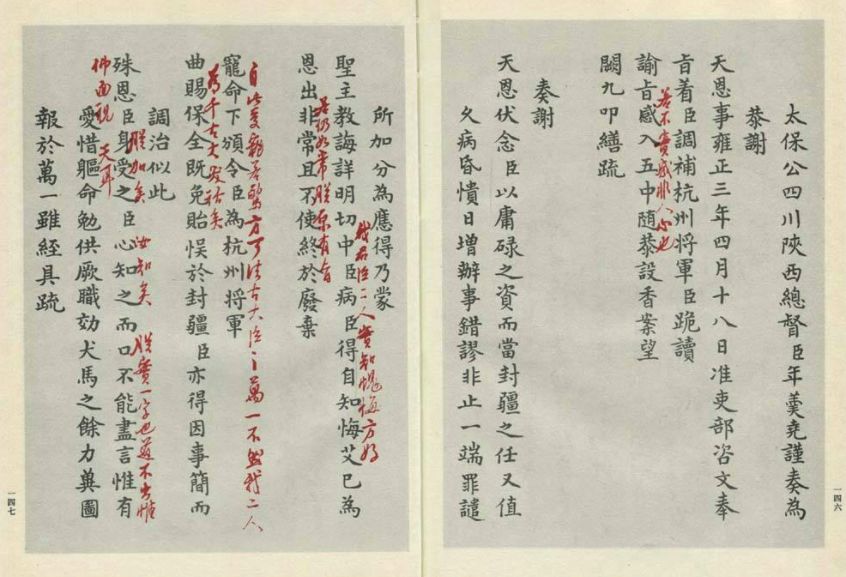 太保公四川陝西總督臣年羹堯謹奏為
恭謝
天恩事雍正三年四月十八日准吏部咨文奉
旨着臣調補杭州將軍臣跪讀
若不實感非人心也
諭旨感入五中随恭設香案望
闕九叩繕疏
奏謝
天恩伏念臣以庸碌之資而當封疆之任又值
久病昏憒日增辦事錯謬非止一端罪譴
一四六
所加分為應得乃蒙
我君臣二人實知愧悔方好
聖主教誨詳明切中臣病臣得自知悔艾已為
若仍如常朕原有旨
恩出非常且不使終於廢棄
自此方可法古大臣之萬一不然我二人
為千古大笑話矣
寵命下頒令臣為杭州將軍
曲賜保全既免貽悞於封疆臣亦得因事簡而
調治似此
朕加矣 汝知矣 朕實一字也道不出惟
殊恩臣身受之臣心知之而口不能盡言惟有
佛面視 天耳
愛惜軀命勉供厥職効犬馬之餘力冀圖
報於萬一雖經具疏
一四七